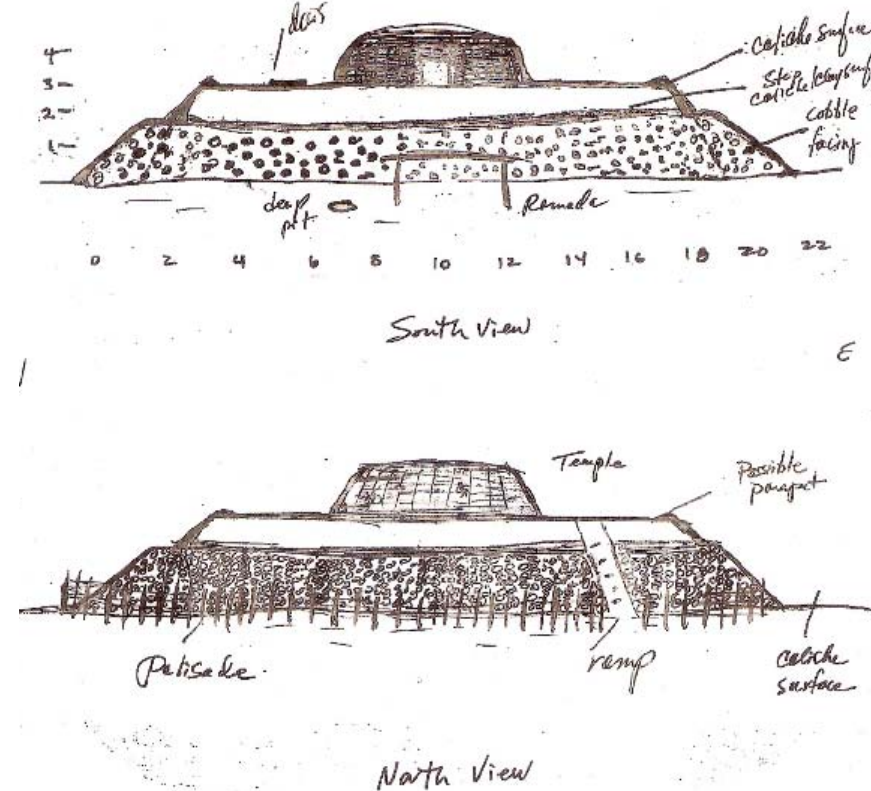 dais
4
3
2
1
caliche surface
Step
caliche/clay surf
cobble
facing
deep
pit
Ramada
0 2 4 6 8 10 12 14 16 18 20 22
South View
E
Temple
Possible
parapet
Palisade
ramp
caliche
surface
North View